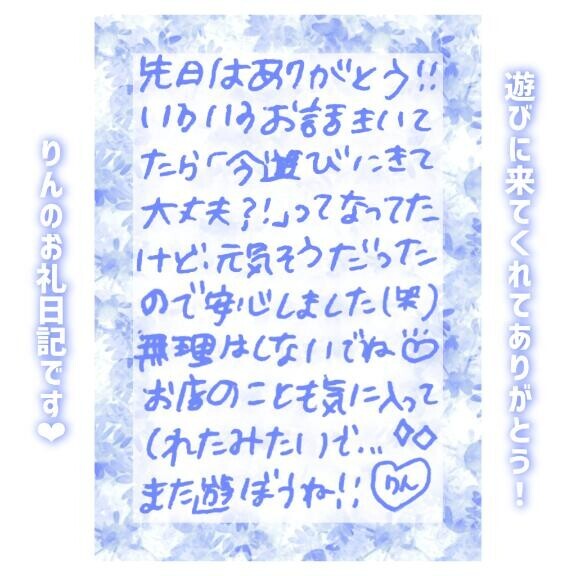 遊びに来てくれてありがとう！
先日はありがとう!!
いろいろお話きいて
たら「今遊びにきて
大丈夫?!」ってなってた
けど、元気そうだった
ので安心しました(笑)
無理はしないでね♡
お店のことも気に入って
くれたみたいで...
また遊ぼうね!!
りん
りんのお礼日記です❤